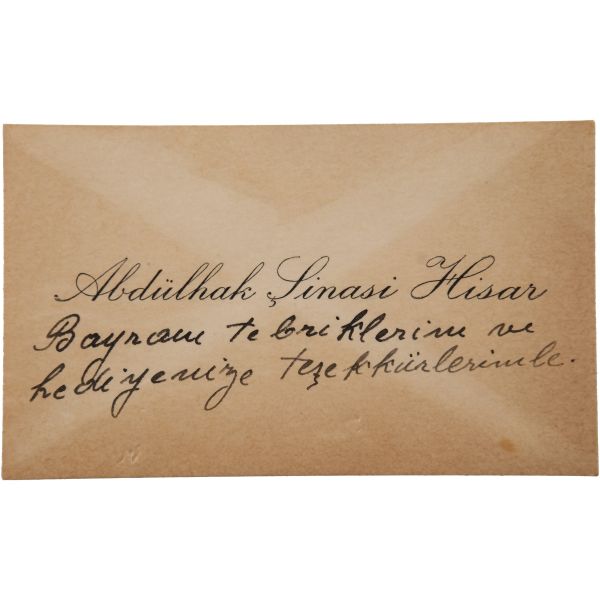 Abdülhak Şinasi Hisar
Bayram tebriklerim ve
hediyenize teşekkürlerimle.